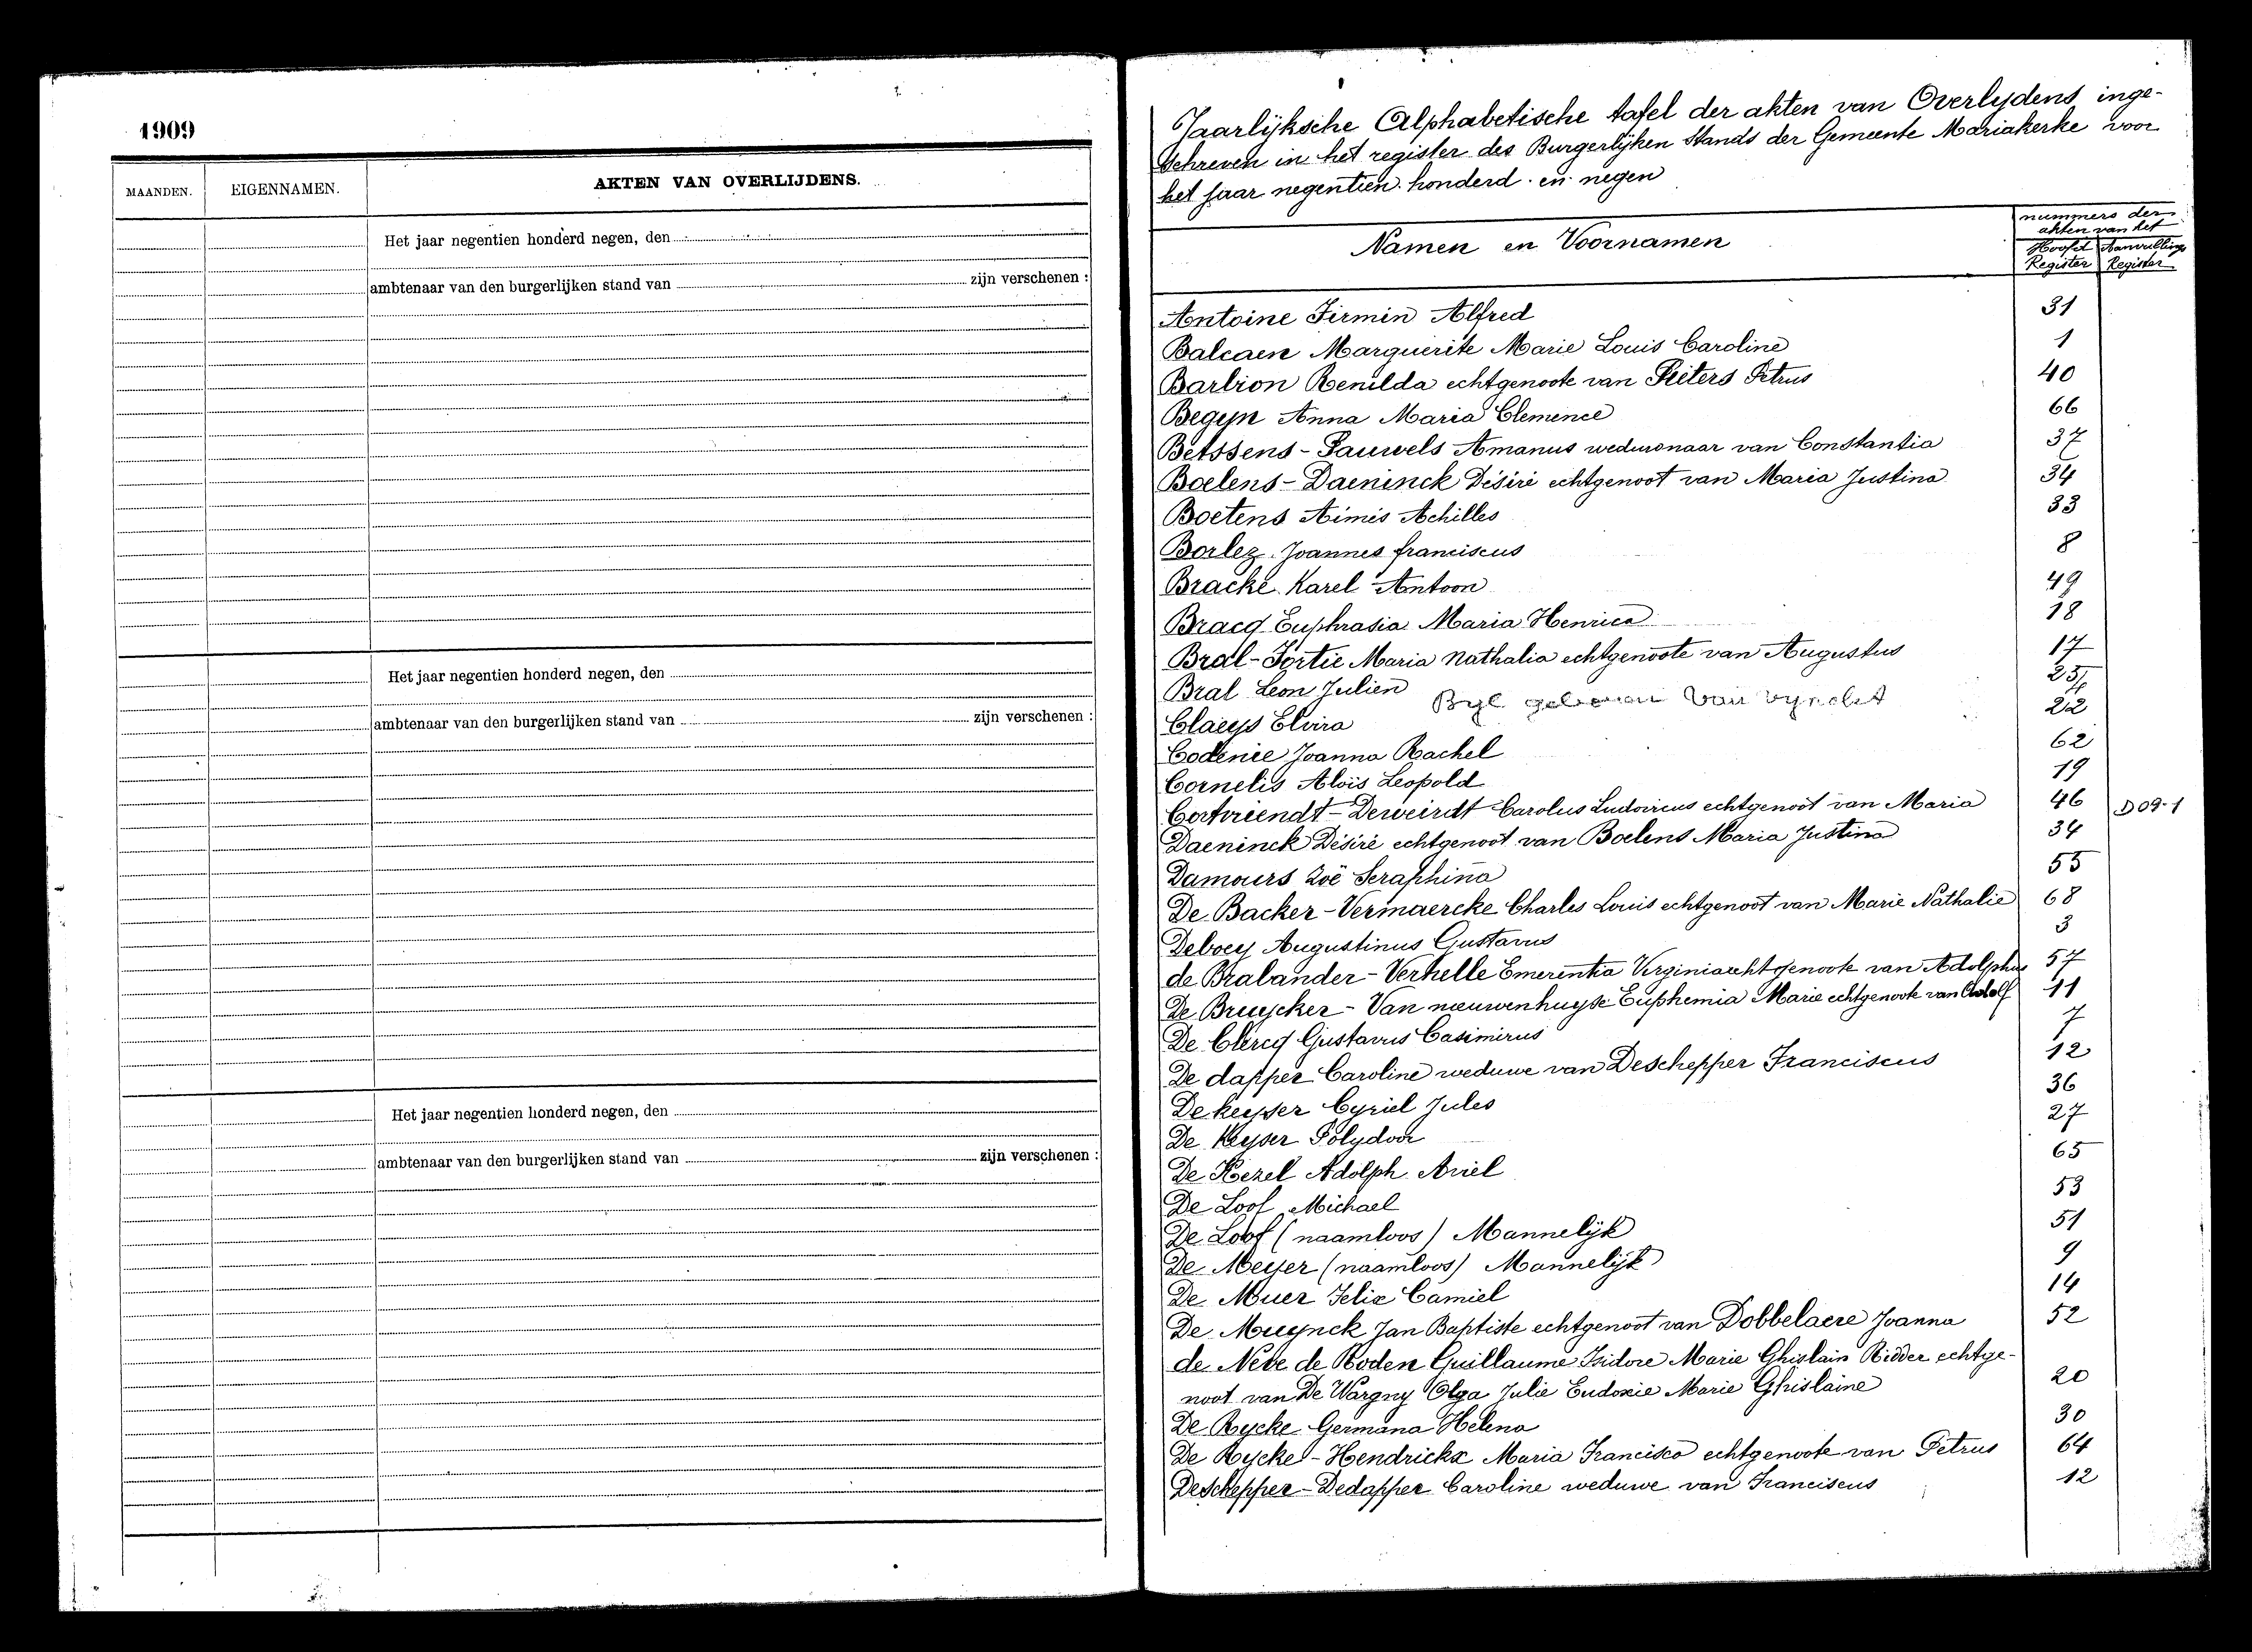 1909
MAANDEN. EIGENNAMEN. AKTEN VAN OVERLIJDENS.
Het jaar negentien honderd negen, den
ambtenaar van den burgerlijken stand van zijn verschenen :
Het jaar negentien honderd negen, den
ambtenaar van den burgerlijken stand van zijn verschenen :
Het jaar negentien honderd negen, den
ambtenaar van den burgerlijken stand van zijn verschenen :
Jaarlijksche Alphabetische tafel der akten van Overlydens inge-
schreven in het register des Burgerlyken Stands der Gemeente Mariakerke voor
het jaar negentien honderd en negen
Namen en Voornamen
nummers der
akten van het
Hoofd Aanvullings
Register Register
Antoine Firmin Alfred 31
Balcaen Marguerite Marie Louis Caroline 1
Barbion Renilda echtgenoote van Pieters Petrus 40
Begyn Anna Maria Clemence 66
Betssens - Pauwels Amanus weduwnaar van Constantia 37
Boelens - Daeninck Désiré echtgenoot van Maria Justina 34
Boetens Aimés Achilles 33
Borlez Joannes franciscus 8
Bracke Karel Antoon 49
Bracq Euphrasia Maria Henrica 18
Bral - Fortie Maria Nathalia echtgenoote van Augustus 17
Bral Leon Julien 25
Claeys Elvira Byl 22
Codenie Joanna Rachel 62
Cornelis Aloïs Leopold 19
Cortvriendt - Deweirdt Carolus Ludovicus echtgenoot van Maria 46 D09-1
Daeninck Désiré echtgenoot van Boelens Maria Justina 34
Damours Zoë Seraphina 55
De Backer - Vermaercke Charles Louis echtgenoot van Marie Nathalie 68
Deboey Augustinus Gustavus 3
de Brabander - Verhelle Emerentia Virginia echtgenoote van Adolphus 57
De Bruycker - Van nieuwenhuyse Euphemia Marie echtgenoote van Adolf 11
De Clercq Gustavus Casimirus 7
De dapper Caroline weduwe van Deschepper Franciscus 12
De keyser Cyriel Jules 36
De Keyser Polydoor 27
De Kezel Adolph Ariel 65
De Loof Michael 53
De Loof (naamloos) Mannelijk 51
De Meyer (naamloos) Mannelijk 9
De Muer Felix Camiel 14
De Muynck Jan Baptiste echtgenoot van Dobbelaere Joanna 52
de Neve de Roden Guillaume Isidore Marie Ghislain Ridder echtge-
noot van De Wargny Olga Julie Eudoxie Marie Ghislaine 20
De Rycke Germana Helena 30
De Rycke - Hendrickx Maria Francisca echtgenoote van Petrus 64
Deschepper - Dedapper Caroline weduwe van Franciscus 12